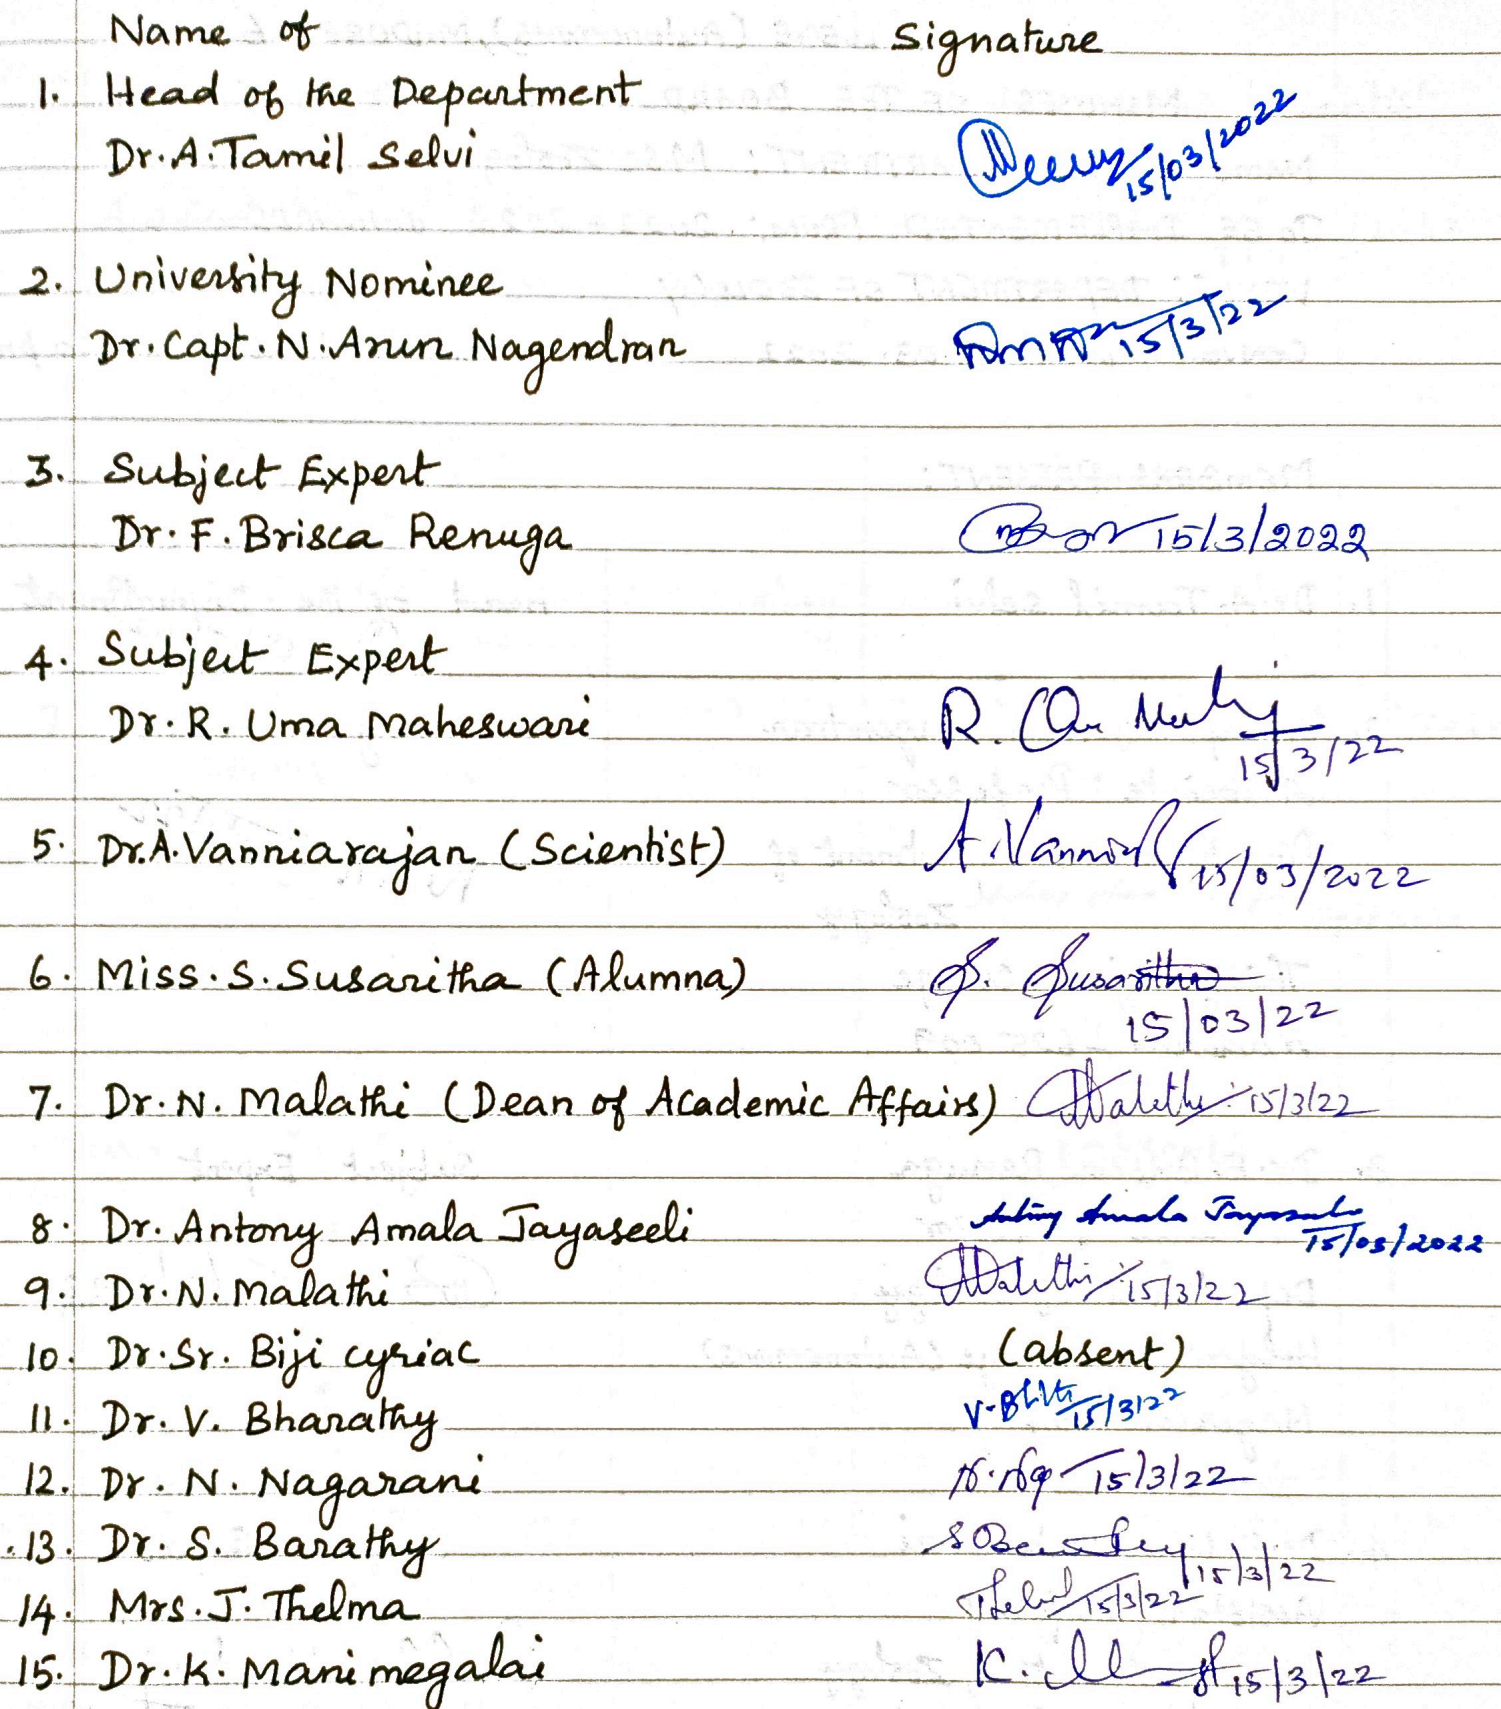 Name of Signature
1. Head of the Department
Dr. A. Tamil Selvi 15/03/2022
2. University Nominee
Dr. Capt. N. Arun Nagendran 15/3/22
3. Subject Expert
Dr. F. Brisca Renuga 15/3/2022
4. Subject Expert
Dr. R. Uma Maheswari R.
15/3/22
5. Dr. A. Vanniarajan (Scientist) A. 15/03/2022
6. Miss. S. Susaritha (Alumna) S. Susaritha
15/03/22
7. Dr. N. Malathi (Dean of Academic Affairs) Malathi 15/3/22
8. Dr. Antony Amala Jayaseeli Antony Amala Jayaseeli
15/03/2022
9. Dr. N. Malathi Malathi 15/3/22
10. Dr. Sr. Biji cyriac (absent)
11. Dr. V. Bharathy 15/3/22
12. Dr. N. Nagarani 15/3/22
13. Dr. S. Barathy 15/3/22
14. Mrs. J. Thelma 15/3/22
15. Dr. K. Manimegalai K. 15/3/22